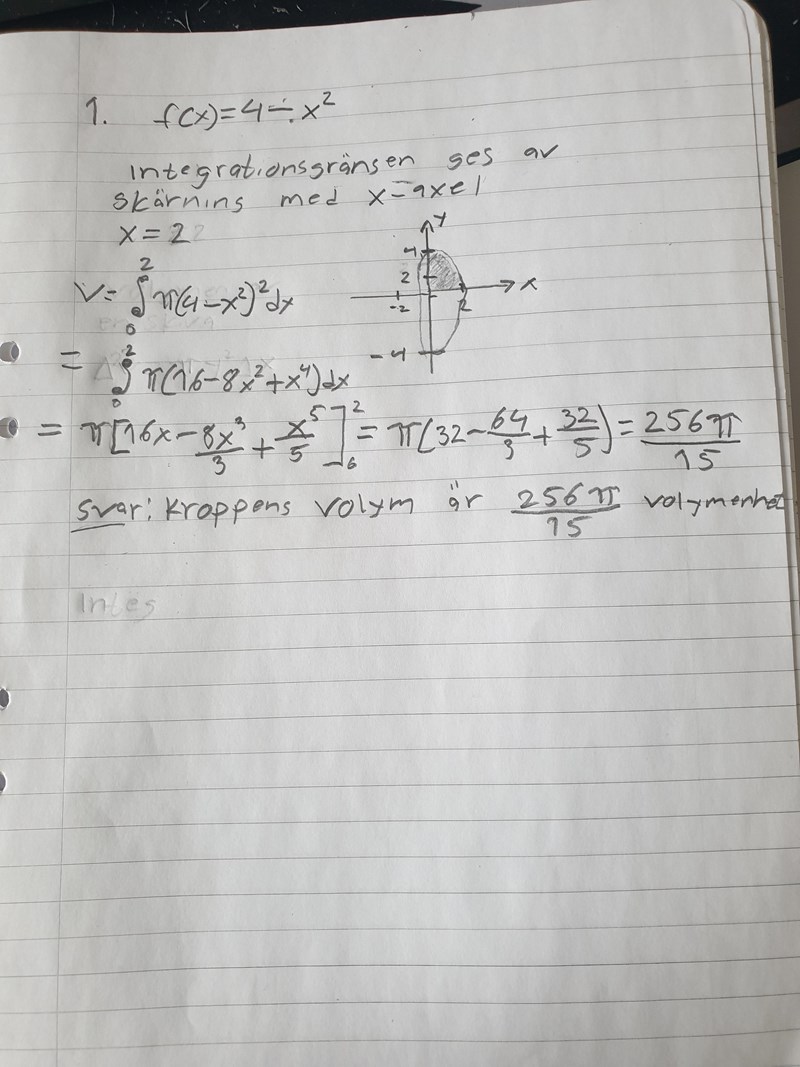 1. f(x)=4÷x²
Integrationsgränsen ges av
skärning med x-axel
x=2
y
4
2
x
-2
2
-4
V= ∫₀² π(4-x²)²dx
= ∫₀² π(16-8x²+x⁴)dx
= π[16x-8x³/3+x⁵/5]₀² = π(32-64/3+32/5) = 256π/15
Svar: Kroppens volym är 256π/15 volymenhet
Integ